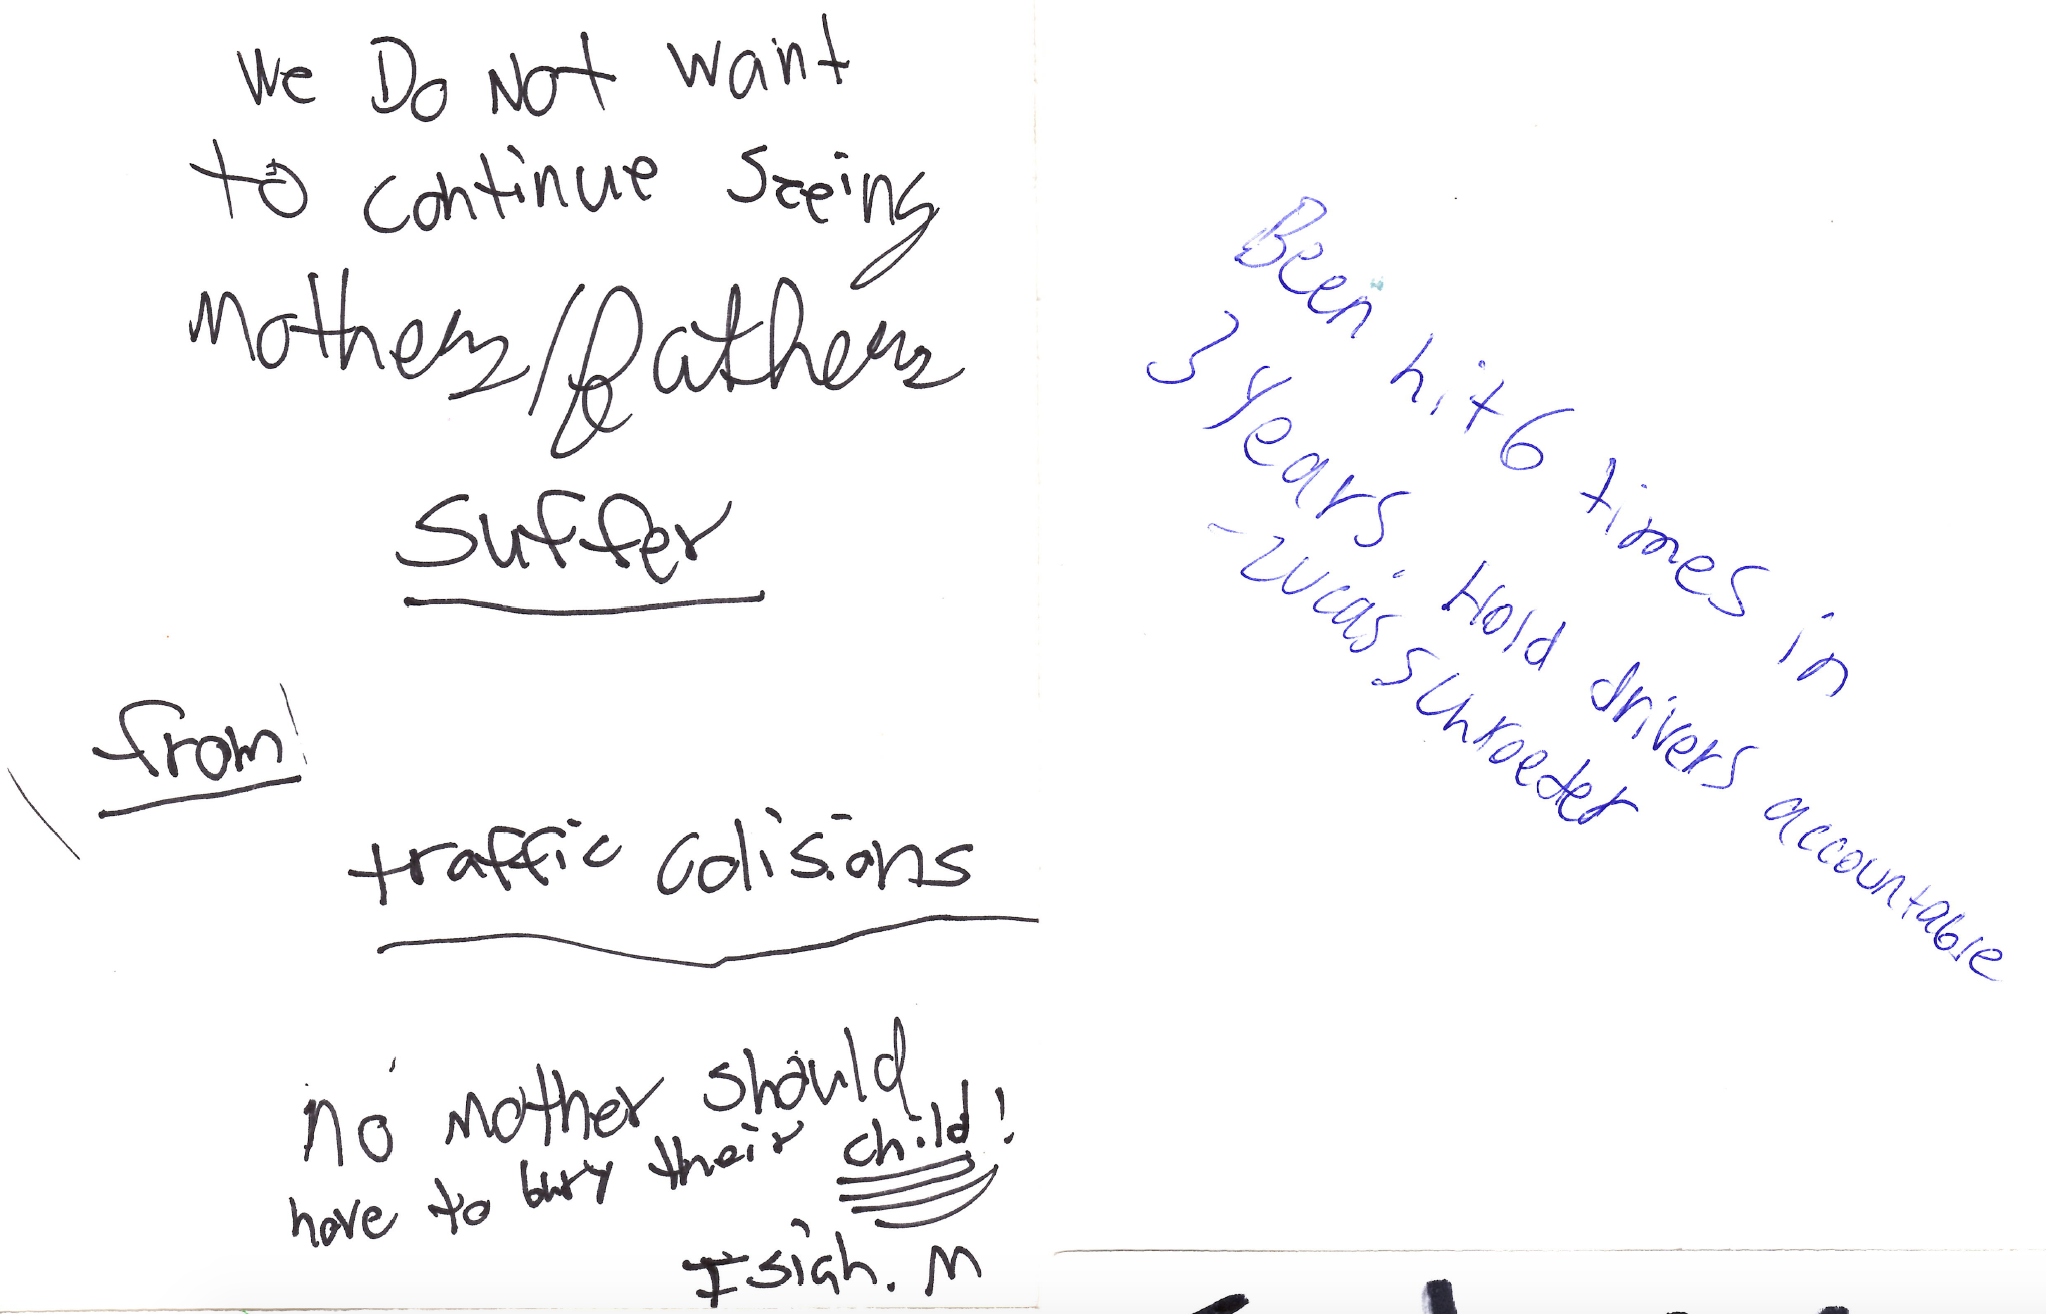 We Do Not want
to continue seeing
Mothers/fathers
suffer
from
traffic colisions
no mother should
have to bury their child!
Isiah. M
Been hit 6 times in
3 years. Hold drivers accountable
- Lucas Schroeder